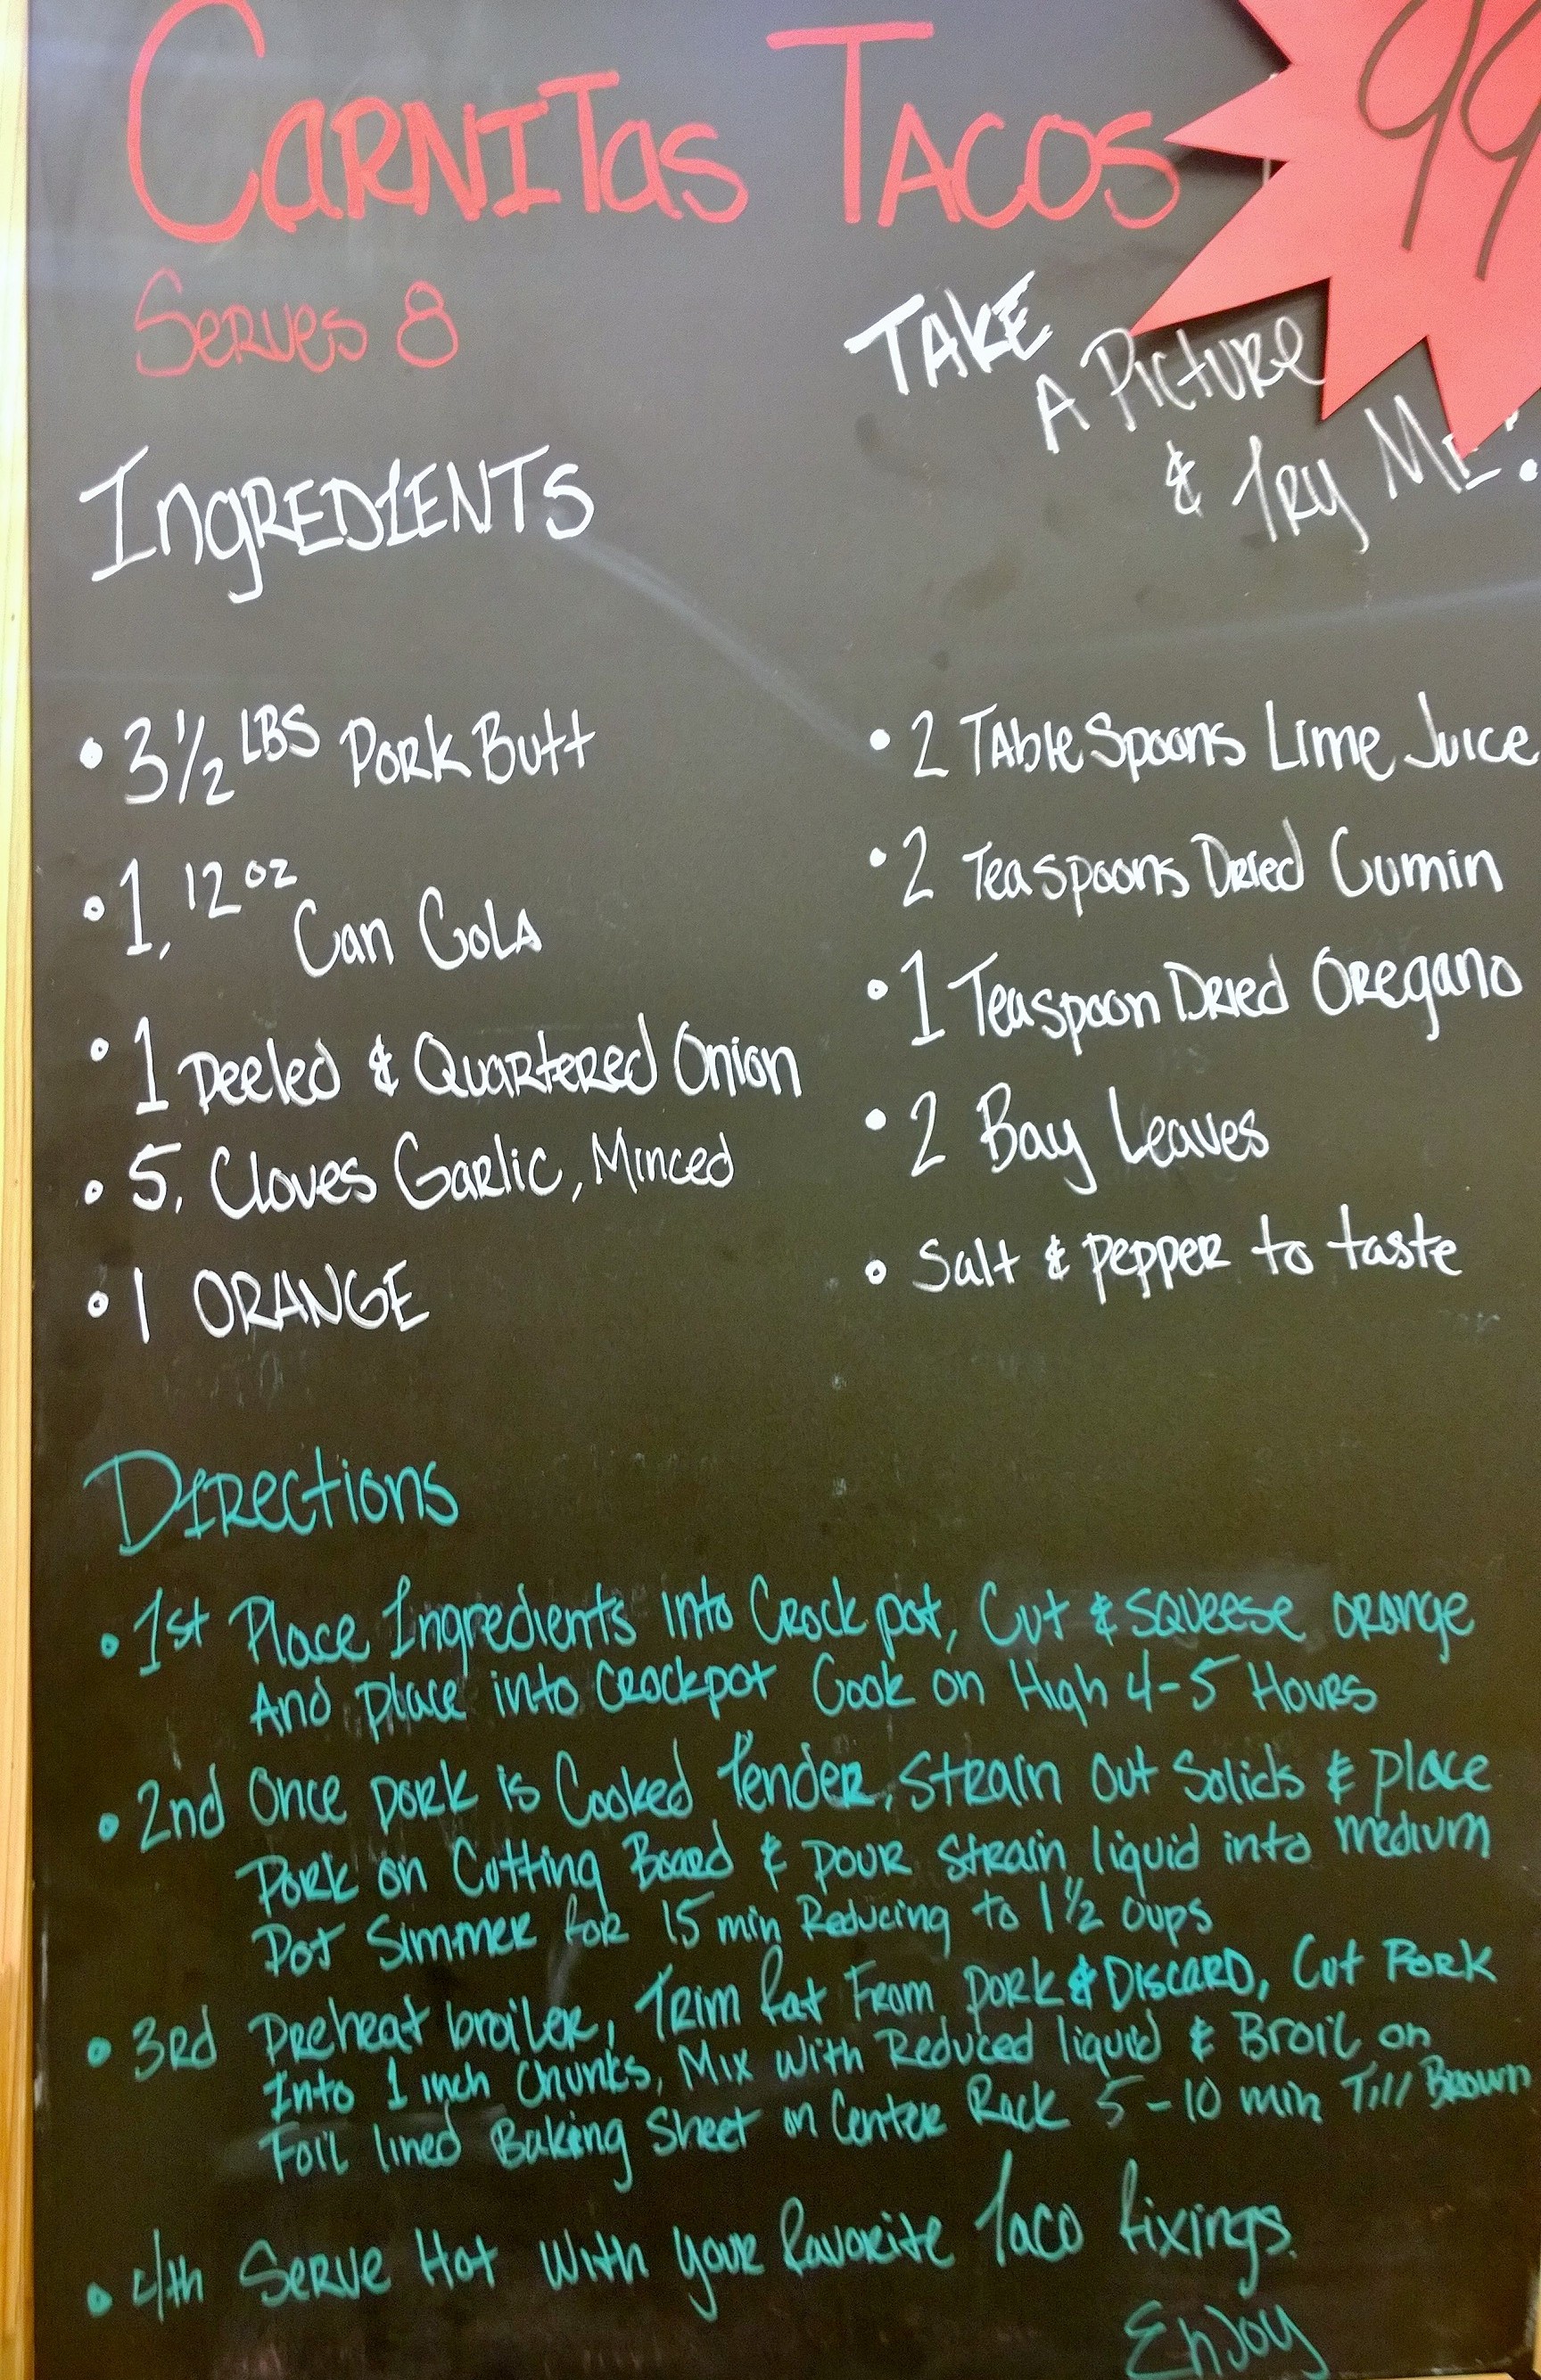 Carnitas Tacos
99
Serves 8
Take
A Picture
& Try Me!
Ingredients
• 3 1/2 LBS Pork Butt
• 1, 12 oz Can Cola
• 1 Peeled & Quartered Onion
• 5, Cloves Garlic, Minced
• 1 ORANGE
• 2 TableSpoons Lime Juice
• 2 Teaspoons Dried Cumin
• 1 Teaspoon Dried Oregano
• 2 Bay Leaves
• Salt & pepper to taste
Directions
• 1st Place Ingredients into Crock pot, Cut & squeese orange
And place into Crockpot Cook on High 4-5 Hours
• 2nd Once pork is Cooked Tender, Strain out Solids & place
Pork on Cutting Board & pour strain liquid into medium
Pot Simmer for 15 min Reducing to 1 1/2 cups
• 3rd Preheat broiler, Trim fat From pork & Discard, Cut Pork
Into 1 inch Chunks, Mix with Reduced liquid & Broil on
Foil lined Baking Sheet on Center Rack 5-10 min Till Brown
• 4th Serve Hot With your favorite Taco fixings.
Enjoy